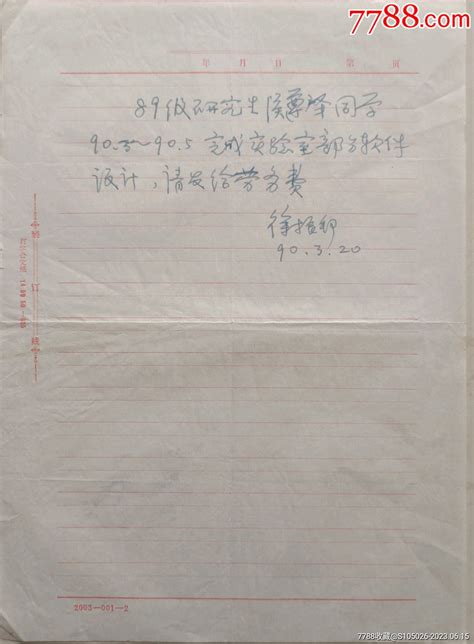 7788.com
年 月 日 第 页
89级研究生侯尊泽同学
90.3~90.5 完成实验室部分软件
设计，请发给劳务费
徐
90.3.20
装 订 线
2003—001—2
7788收藏@S105026-2023.06.15